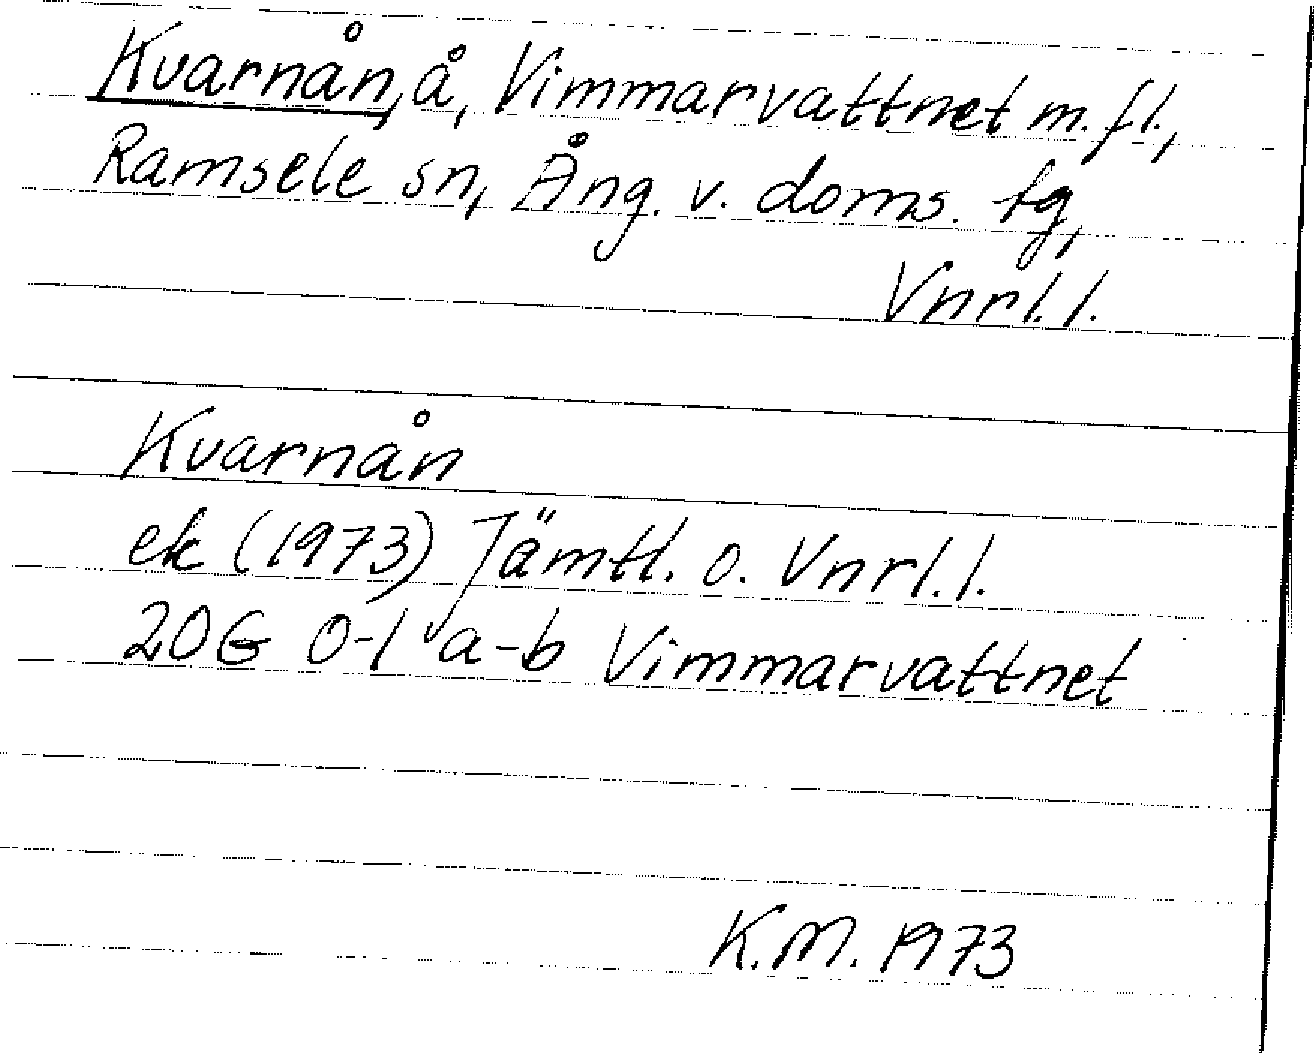 Kvarnån, å, Vimmarvattnet m.fl.,
Ramsele sn, Ång. v. doms. tg,
Vnrl.l.
Kvarnån
ek (1973) Jämtl. o. Vnrl.l.
20G 0-1 a-b Vimmarvattnet
K.M. 1973